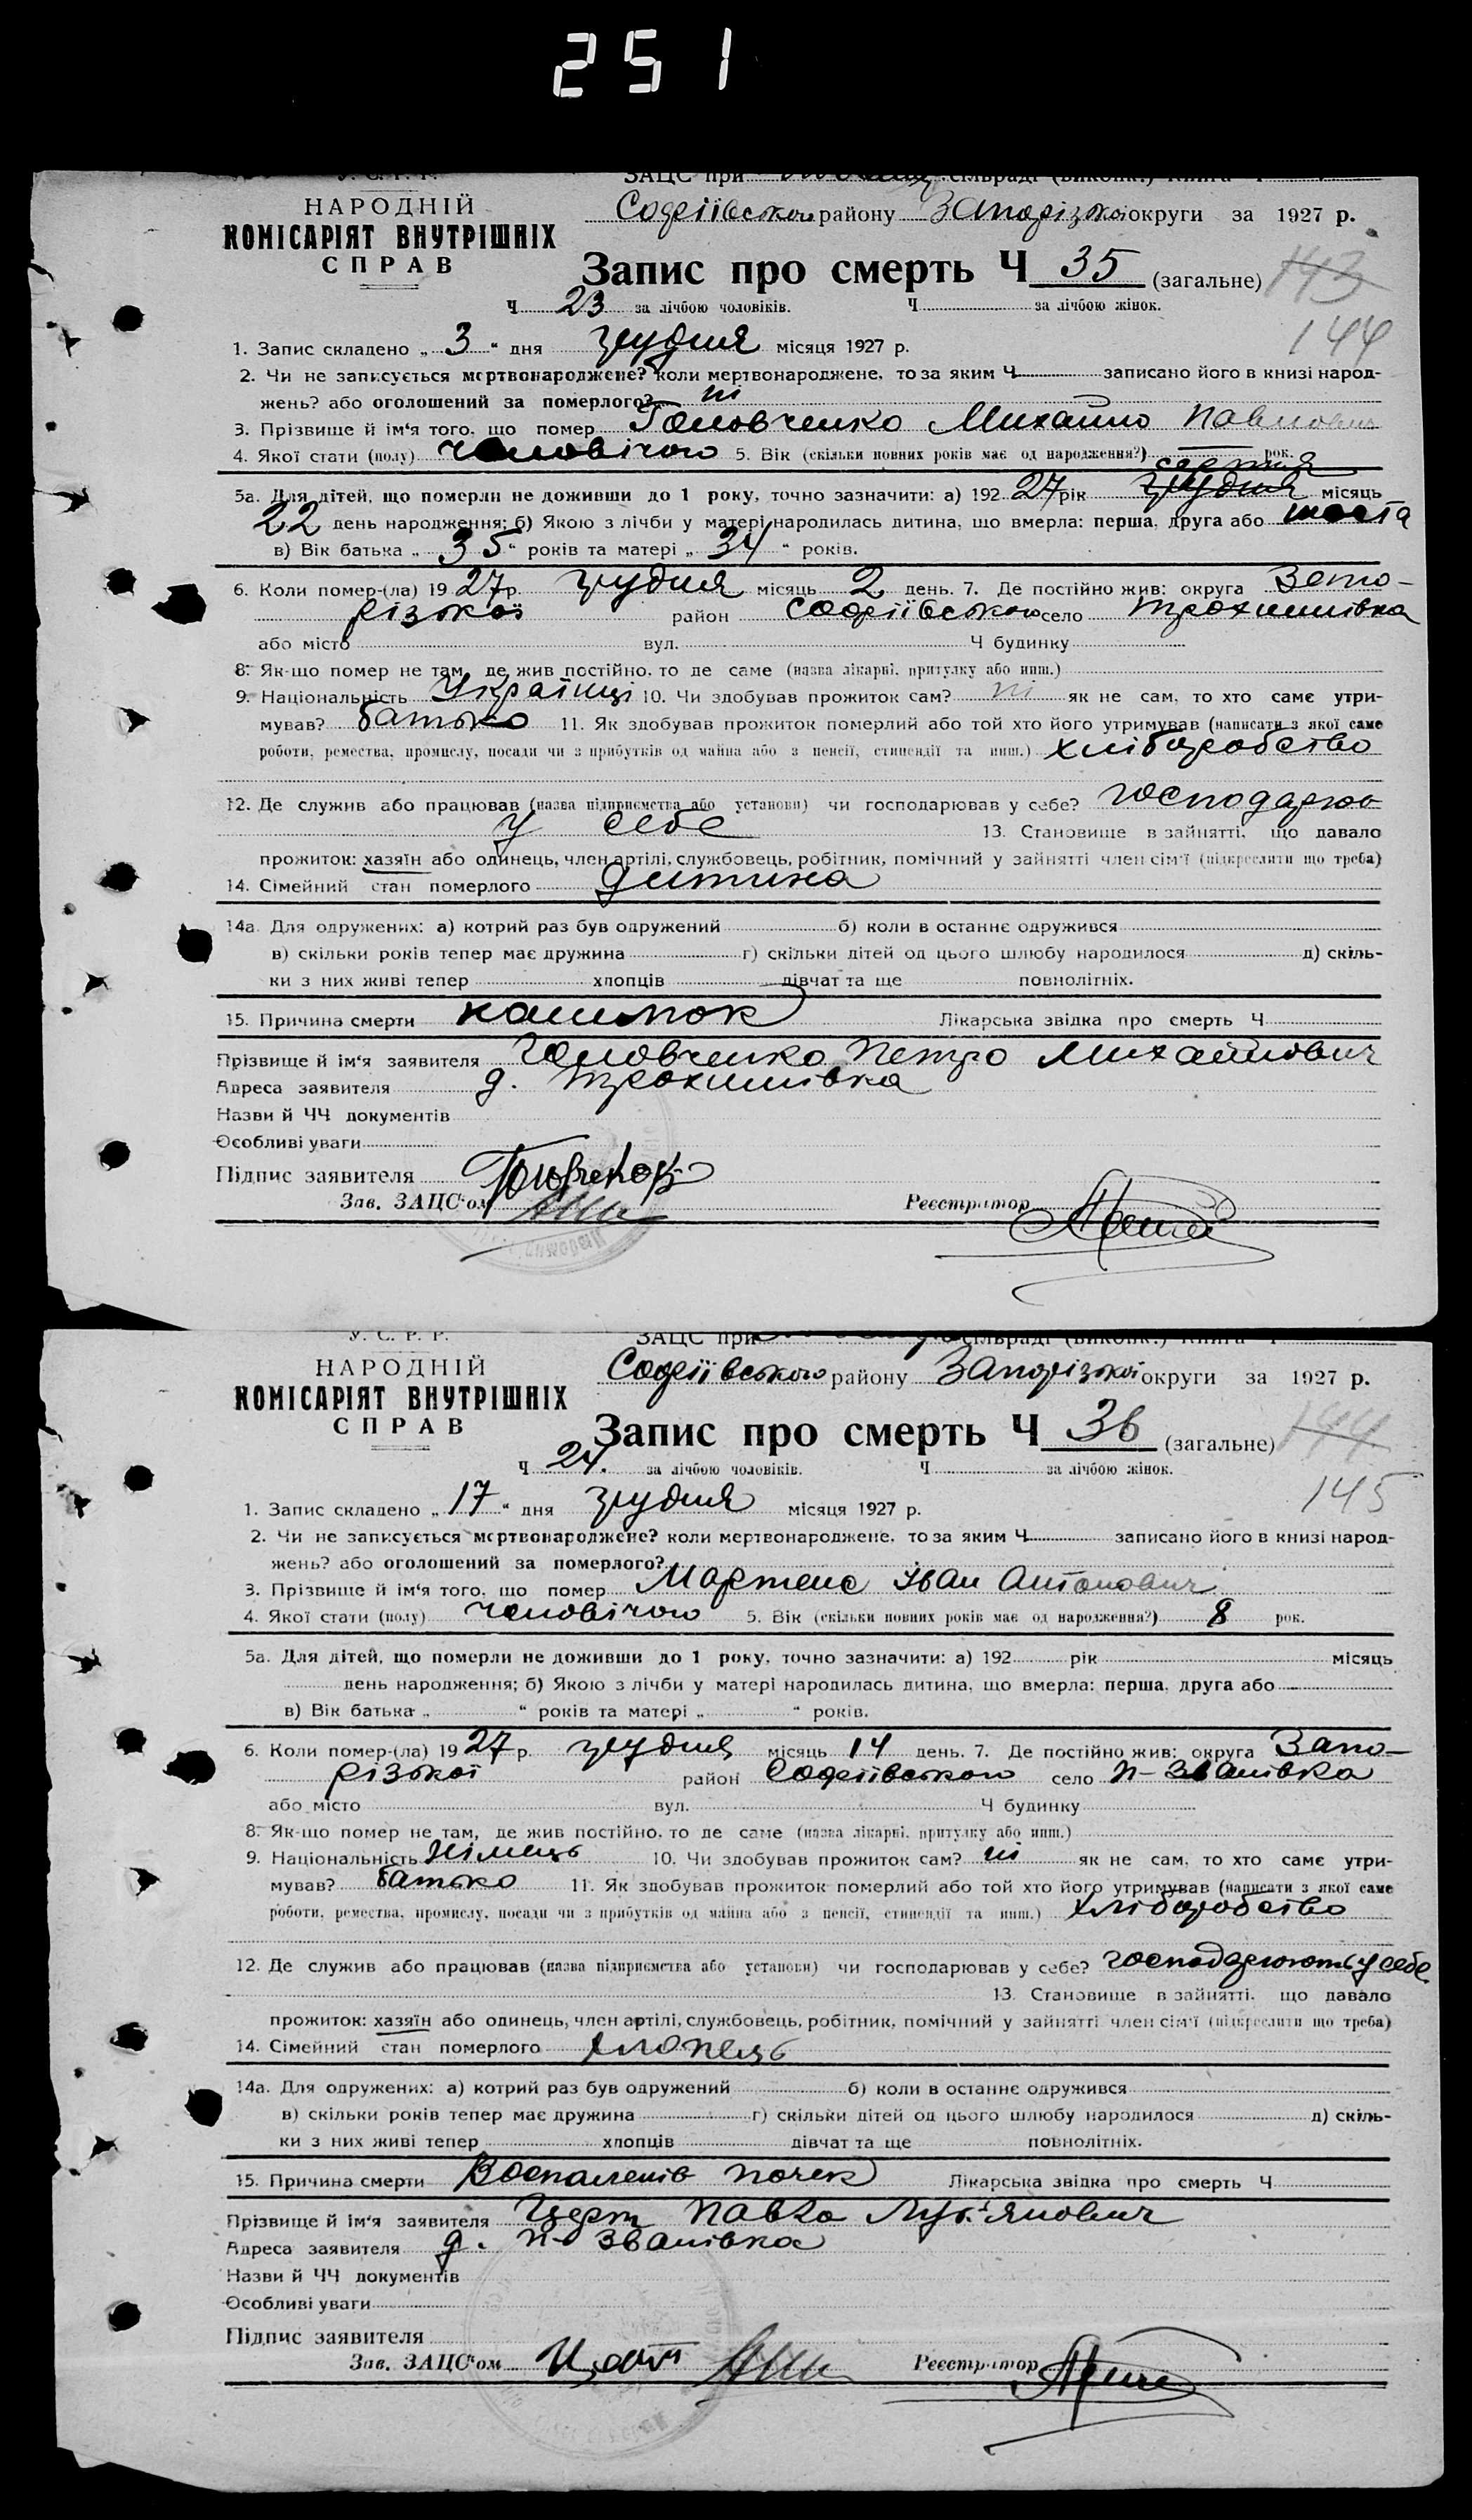 251
У. С. Р. Р.
ЗАЦС при сільраді (виконк.) Книга Ч
НАРОДНІЙ
КОМІСАРІЯТ ВНУТРІШНІХ
СПРАВ
Софіївського району Запорізької округи за 1927 р.
Запис про смерть Ч 35 (загальне) 143
144
Ч 23 за лічбою чоловіків. Ч за лічбою жінок.
1. Запис складено „ 3 “ дня грудня місяця 1927 р.
2. Чи не записується мертвонароджене? коли мертвонароджене, то за яким Ч записано його в книзі народ-
жень? або оголошений за померлого? ні
3. Прізвище й ім'я того, що помер Головченко Михайло Павлович
4. Якої стати (полу) чоловічого 5. Вік (скільки повних років має од народження?) рок.
5а. Для дітей, що померли не доживши до 1 року, точно зазначити: а) 192 27 рік грудня серпня місяць
22 день народження; б) Якою з лічби у матері народилась дитина, що вмерла: перша, друга або шоста
в) Вік батька „ 35 “ років та матері „ 34 “ років.
6. Коли помер-(ла) 19 27 р. грудня місяць 2 день. 7. Де постійно жив: округа Запо-
різької район Софіївського село Трохимівка
або місто вул. Ч будинку
8. Як-що помер не там, де жив постійно, то де саме (назва лікарні, притулку або инш.)
9. Національність Українці 10. Чи здобував прожиток сам? ні як не сам, то хто саме утри-
мував? батько 11. Як здобував прожиток померлий або той хто його утримував (написати з якої саме
роботи, ремества, промислу, посади чи з прибутків од майна або з пенсії, стипендії та инш.) хліборобство
12. Де служив або працював (назва підприємства або установи) чи господарював у себе? господарюв
у себе 13. Становище в зайнятті, що давало
прожиток: хазяїн або одинець, член артілі, службовець, робітник, помічний у зайнятті член сім'ї (підкреслити що треба)
14. Сімейний стан померлого дитина
14а. Для одружених: а) котрий раз був одружений б) коли в останнє одружився
в) скільки років тепер має дружина г) скільки дітей од цього шлюбу народилося д) скіль-
ки з них живі тепер хлопців дівчат та ще повнолітніх.
15. Причина смерти кашлюк Лікарська звідка про смерть Ч
Прізвище й ім'я заявителя Головченко Петро Михайлович
Адреса заявителя д. Трохимівка
Назви й ЧЧ документів
Особливі уваги
Підпис заявителя
Зав. ЗАЦС'ом Реєстратор
У. С. Р. Р.
ЗАЦС при сільраді (виконк.) Книга Ч
НАРОДНІЙ
КОМІСАРІЯТ ВНУТРІШНІХ
СПРАВ
Софіївського району Запорізької округи за 1927 р.
Запис про смерть Ч 36 (загальне) 144
145
Ч 24. за лічбою чоловіків. Ч за лічбою жінок.
1. Запис складено „ 17 “ дня грудня місяця 1927 р.
2. Чи не записується мертвонароджене? коли мертвонароджене, то за яким Ч записано його в книзі народ-
жень? або оголошений за померлого?
3. Прізвище й ім'я того, що помер Мартенс Іван Антонович
4. Якої стати (полу) чоловічого 5. Вік (скільки повних років має од народження?) 8 рок.
5а. Для дітей, що померли не доживши до 1 року, точно зазначити: а) 192 рік місяць
день народження; б) Якою з лічби у матері народилась дитина, що вмерла: перша, друга або
в) Вік батька „ “ років та матері „ “ років.
6. Коли помер-(ла) 19 27 р. грудня місяць 14 день. 7. Де постійно жив: округа Запо-
різької район Софіївського село п-Званівка
або місто вул. Ч будинку
8. Як-що помер не там, де жив постійно, то де саме (назва лікарні, притулку або инш.)
9. Національність Німець 10. Чи здобував прожиток сам? ні як не сам, то хто саме утри-
мував? батько 11. Як здобував прожиток померлий або той хто його утримував (написати з якої саме
роботи, ремества, промислу, посади чи з прибутків од майна або з пенсії, стипендії та инш.) хліборобство
12. Де служив або працював (назва підприємства або установи) чи господарював у себе? господарюють у себе
13. Становище в зайнятті, що давало
прожиток: хазяїн або одинець, член артілі, службовець, робітник, помічний у зайнятті член сім'ї (підкреслити що треба)
14. Сімейний стан померлого хлопець
14а. Для одружених: а) котрий раз був одружений б) коли в останнє одружився
в) скільки років тепер має дружина г) скільки дітей од цього шлюбу народилося д) скіль-
ки з них живі тепер хлопців дівчат та ще повнолітніх.
15. Причина смерти Воспаленів почек Лікарська звідка про смерть Ч
Прізвище й ім'я заявителя Павло
Адреса заявителя д. п-Званівка
Назви й ЧЧ документів
Особливі уваги
Підпис заявителя
Зав. ЗАЦС'ом Реєстратор